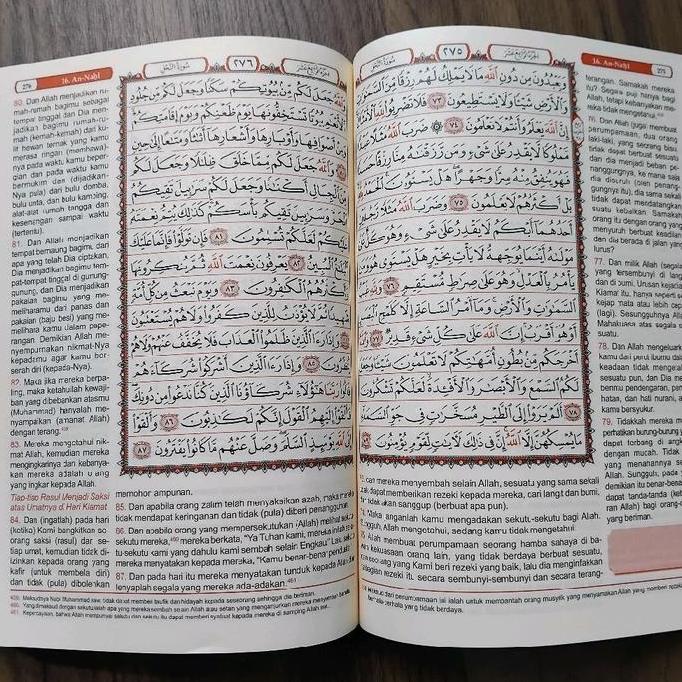 سُورَةُ النَّحْلِ
٢٧٥
الجُزْءُ الرَّابِعَ عَشَرَ
16. An-Naḥl
275
وَيَعْبُدُونَ مِن دُونِ ٱللَّهِ مَا لَا يَمْلِكُ لَهُمْ رِزْقًا مِّنَ ٱلسَّمَٰوَٰتِ
وَٱلْأَرْضِ شَيْـًٔا وَلَا يَسْتَطِيعُونَ ٧٣ فَلَا تَضْرِبُوا۟ لِلَّهِ ٱلْأَمْثَالَ
إِنَّ ٱللَّهَ يَعْلَمُ وَأَنتُمْ لَا تَعْلَمُونَ ٧٤ ۞ ضَرَبَ ٱللَّهُ مَثَلًا عَبْدًا
مَّمْلُوكًا لَّا يَقْدِرُ عَلَىٰ شَىْءٍ وَمَن رَّزَقْنَٰهُ مِنَّا رِزْقًا حَسَنًا
فَهُوَ يُنفِقُ مِنْهُ سِرًّا وَجَهْرًا ۖ هَلْ يَسْتَوُۥنَ ۚ ٱلْحَمْدُ لِلَّهِ ۚ
بَلْ أَكْثَرُهُمْ لَا يَعْلَمُونَ ٧٥ وَضَرَبَ ٱللَّهُ مَثَلًا رَّجُلَيْنِ
أَحَدُهُمَآ أَبْكَمُ لَا يَقْدِرُ عَلَىٰ شَىْءٍ وَهُوَ كَلٌّ عَلَىٰ
مَوْلَىٰهُ أَيْنَمَا يُوَجِّههُّ لَا يَأْتِ بِخَيْرٍ ۖ هَلْ يَسْتَوِى هُوَ وَمَن
يَأْمُرُ بِٱلْعَدْلِ ۙ وَهُوَ عَلَىٰ صِرَٰطٍ مُّسْتَقِيمٍ ٧٦ وَلِلَّهِ غَيْبُ
ٱلسَّمَٰوَٰتِ وَٱلْأَرْضِ ۚ وَمَآ أَمْرُ ٱلسَّاعَةِ إِلَّا كَلَمْحِ ٱلْبَصَرِ
أَوْ هُوَ أَقْرَبُ ۚ إِنَّ ٱللَّهَ عَلَىٰ كُلِّ شَىْءٍ قَدِيرٌ ٧٧ وَٱللَّهُ
أَخْرَجَكُم مِّنۢ بُطُونِ أُمَّهَٰتِكُمْ لَا تَعْلَمُونَ شَيْـًٔا وَجَعَلَ
لَكُمُ ٱلسَّمْعَ وَٱلْأَبْصَٰرَ وَٱلْأَفْـِٔدَةَ ۙ لَعَلَّكُمْ تَشْكُرُونَ
٧٨ أَلَمْ يَرَوْا۟ إِلَى ٱلطَّيْرِ مُسَخَّرَٰتٍ فِى جَوِّ ٱلسَّمَآءِ
مَا يُمْسِكُهُنَّ إِلَّا ٱللَّهُ ۗ إِنَّ فِى ذَٰلِكَ لَءَايَٰتٍ لِّقَوْمٍ يُؤْمِنُونَ ٧٩
dan mereka menyembah selain Allah, sesuatu yang sama sekali
dapat memberikan rezeki kepada mereka, dari langit dan bumi,
tidak akan sanggup (berbuat apa pun).
Maka janganlah kamu mengadakan sekutu-sekutu bagi Allah.
Sungguh, Allah mengetahui, sedang kamu tidak mengetahui.
Allah membuat perumpamaan seorang hamba sahaya di ba-
kekuasaan orang lain, yang tidak berdaya berbuat sesuatu,
seorang yang Kami beri rezeki yang baik, lalu dia menginfakkan
sebagian rezeki itu secara sembunyi-sembunyi dan secara terang-
terangan. Samakah mereka
itu? Segala puji hanya bagi
Allah, tetapi kebanyakan me-
76. Dan Allah (juga) membuat
perumpamaan, dua orang
laki-laki, yang seorang bisu,
tidak dapat berbuat sesuatu
dan dia menjadi beban pe-
nanggungnya, ke mana saja
dia disuruh (oleh penang-
gungnya itu), dia sama sekali
tidak dapat mendatangkan
suatu kebaikan. Samakah
orang itu dengan orang yang
menyuruh berbuat keadilan
dan dia berada di jalan yang
lurus?
77. Dan milik Allah (segala)
yang tersembunyi di langit
dan di bumi. Urusan kejadian
Kiamat itu, hanya seperti se-
kejap mata atau lebih cepat
(lagi). Sesungguhnya Allah
Mahakuasa atas segala se-
suatu.
78. Dan Allah mengeluarkan
kamu dari perut ibumu dalam
keadaan tidak mengetahui
sesuatu pun, dan Dia mem-
berimu pendengaran, peng-
hatan, dan hati nurani, agar
kamu bersyukur.
79. Tidakkah mereka mem-
perhatikan burung-burung yang
dapat terbang di ang-
dengan mudah. Tidak
yang menahannya selain
Allah. Sungguh, pada yang
demikian itu benar-benar ter-
dapat tanda-tanda (kebesar-
an Allah) bagi orang-orang
yang beriman.
سُورَةُ النَّحْلِ
٢٧٦
الجُزْءُ الرَّابِعَ عَشَرَ
276
16. An-Naḥl
وَٱللَّهُ جَعَلَ لَكُم مِّنۢ بُيُوتِكُمْ سَكَنًا وَجَعَلَ لَكُم مِّن جُلُودِ
ٱلْأَنْعَٰمِ بُيُوتًا تَسْتَخِفُّونَهَا يَوْمَ ظَعْنِكُمْ وَيَوْمَ إِقَامَتِكُمْ ۙ
وَمِنْ أَصْوَافِهَا وَأَوْبَارِهَا وَأَشْعَارِهَآ أَثَٰثًا وَمَتَٰعًا إِلَىٰ حِينٍ
٨٠ وَٱللَّهُ جَعَلَ لَكُم مِّمَّا خَلَقَ ظِلَٰلًا وَجَعَلَ لَكُم
مِّنَ ٱلْجِبَالِ أَكْنَٰنًا وَجَعَلَ لَكُمْ سَرَٰبِيلَ تَقِيكُمُ
ٱلْحَرَّ وَسَرَٰبِيلَ تَقِيكُم بَأْسَكُمْ ۚ كَذَٰلِكَ يُتِمُّ نِعْمَتَهُۥ
عَلَيْكُمْ لَعَلَّكُمْ تُسْلِمُونَ ٨١ فَإِن تَوَلَّوْا۟ فَإِنَّمَا عَلَيْكَ
ٱلْبَلَٰغُ ٱلْمُبِينُ ٨٢ يَعْرِفُونَ نِعْمَتَ ٱللَّهِ ثُمَّ يُنكِرُونَهَا
وَأَكْثَرُهُمُ ٱلْكَٰفِرُونَ ٨٣ وَيَوْمَ نَبْعَثُ مِن كُلِّ أُمَّةٍ
شَهِيدًا ثُمَّ لَا يُؤْذَنُ لِلَّذِينَ كَفَرُوا۟ وَلَا هُمْ يُسْتَعْتَبُونَ
٨٤ وَإِذَا رَءَا ٱلَّذِينَ ظَلَمُوا۟ ٱلْعَذَابَ فَلَا يُخَفَّفُ عَنْهُمْ وَلَا هُمْ
يُنظَرُونَ ٨٥ وَإِذَا رَءَا ٱلَّذِينَ أَشْرَكُوا۟ شُرَكَآءَهُمْ
قَالُوا۟ رَبَّنَا هَٰٓؤُلَآءِ شُرَكَآؤُنَا ٱلَّذِينَ كُنَّا نَدْعُوا۟ مِن دُونِكَ ۖ
فَأَلْقَوْا۟ إِلَيْهِمُ ٱلْقَوْلَ إِنَّكُمْ لَكَٰذِبُونَ ٨٦ وَأَلْقَوْا۟
إِلَى ٱللَّهِ يَوْمَئِذٍ ٱلسَّلَمَ ۖ وَضَلَّ عَنْهُم مَّا كَانُوا۟ يَفْتَرُونَ ٨٧
80. Dan Allah menjadikan ru-
mah-rumah bagimu sebagai
tempat tinggal dan Dia men-
jadikan bagimu rumah-ru-
mah (kemah-kemah) dari ku-
lit hewan ternak yang kamu
merasa ringan (membawa)-
nya pada waktu kamu beper-
gian dan pada waktu kamu
bermukim dan (dijadikan-
Nya pula) dari bulu domba,
bulu unta, dan bulu kambing,
alat-alat rumah tangga dan
kesenangan sampai waktu
(tertentu).
81. Dan Allah menjadikan
tempat bernaung bagimu dari
apa yang telah Dia ciptakan,
Dia menjadikan bagimu tem-
pat-tempat tinggal di gunung-
gunung, dan Dia menjadikan
pakaian bagimu yang me-
meliharamu dari panas dan
pakaian (baju besi) yang me-
melihara kamu dalam pepe-
rangan. Demikian Allah me-
nyempurnakan nikmat-Nya
kepadamu agar kamu ber-
serah diri (kepada-Nya).
82. Maka jika mereka berpa-
ling, maka ketahuilah kewajib-
an yang dibebankan atasmu
(Muhammad) hanyalah me-
nyampaikan (amanat Allah)
dengan terang.
83. Mereka mengetahui nik-
mat Allah, kemudian mereka
mengingkarinya dan kebanya-
kan mereka adalah orang
yang ingkar kepada Allah.
Tiap-tiap Rasul Menjadi Saksi
atas Umatnya di Hari Kiamat
84. Dan (ingatlah) pada hari
(ketika) Kami bangkitkan se-
orang saksi (rasul) dari se-
tiap umat, kemudian tidak di-
izinkan kepada orang yang
kafir (untuk membela diri)
dan tidak (pula) dibolehkan
memohon ampunan.
85. Dan apabila orang zalim telah menyaksikan azab, maka mereka
tidak mendapat keringanan dan tidak (pula) diberi penangguhan.
86. Dan apabila orang yang mempersekutukan (Allah) melihat sekutu-
sekutu mereka,460 mereka berkata, "Ya Tuhan kami, mereka inilah sekutu-
sekutu kami yang dahulu kami sembah selain Engkau." Lalu sekutu
mereka menyatakan kepada mereka, "Kamu benar-benar pendusta."
87. Dan pada hari itu mereka menyatakan tunduk kepada Allah dan
lenyaplah segala yang mereka ada-adakan.461